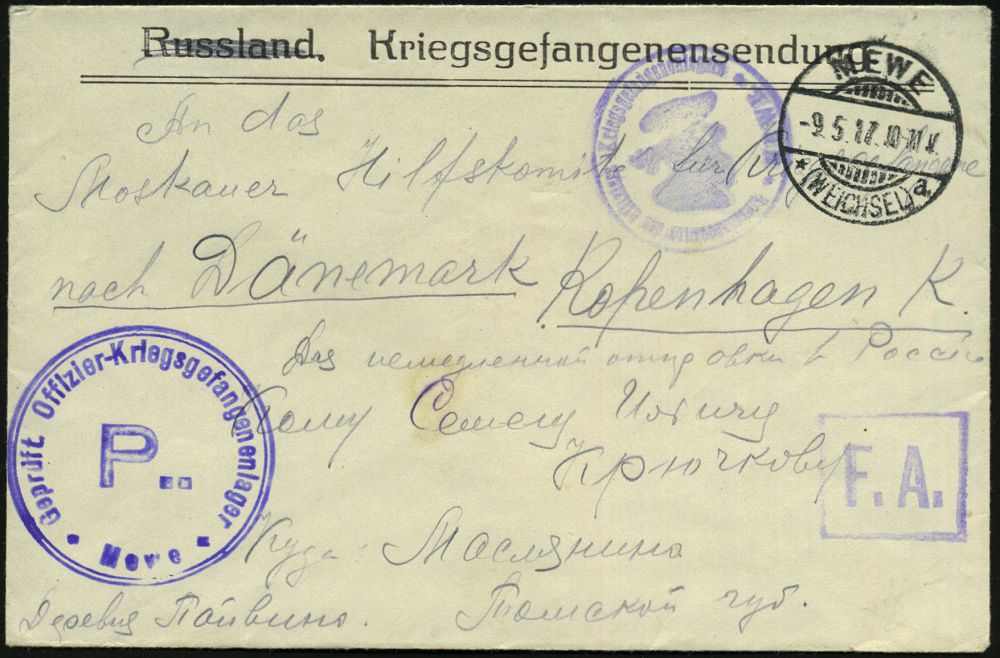 Russland. Kriegsgefangenensendung
MEWE
-9.5.17.10-11V.
* (WEICHSEL) a.
An das
Moskauer Hilfskomite für Kriegsgefangene
nach Dänemark Kopenhagen K.
Для немедленной отправки в Россию
Geprüft Offizier-Kriegsgefangenenlager
P..
Mewe
Кому Семену
Крючкову
F. A.
Куда Маслянино
Деревня Пайвино. Томской губ.